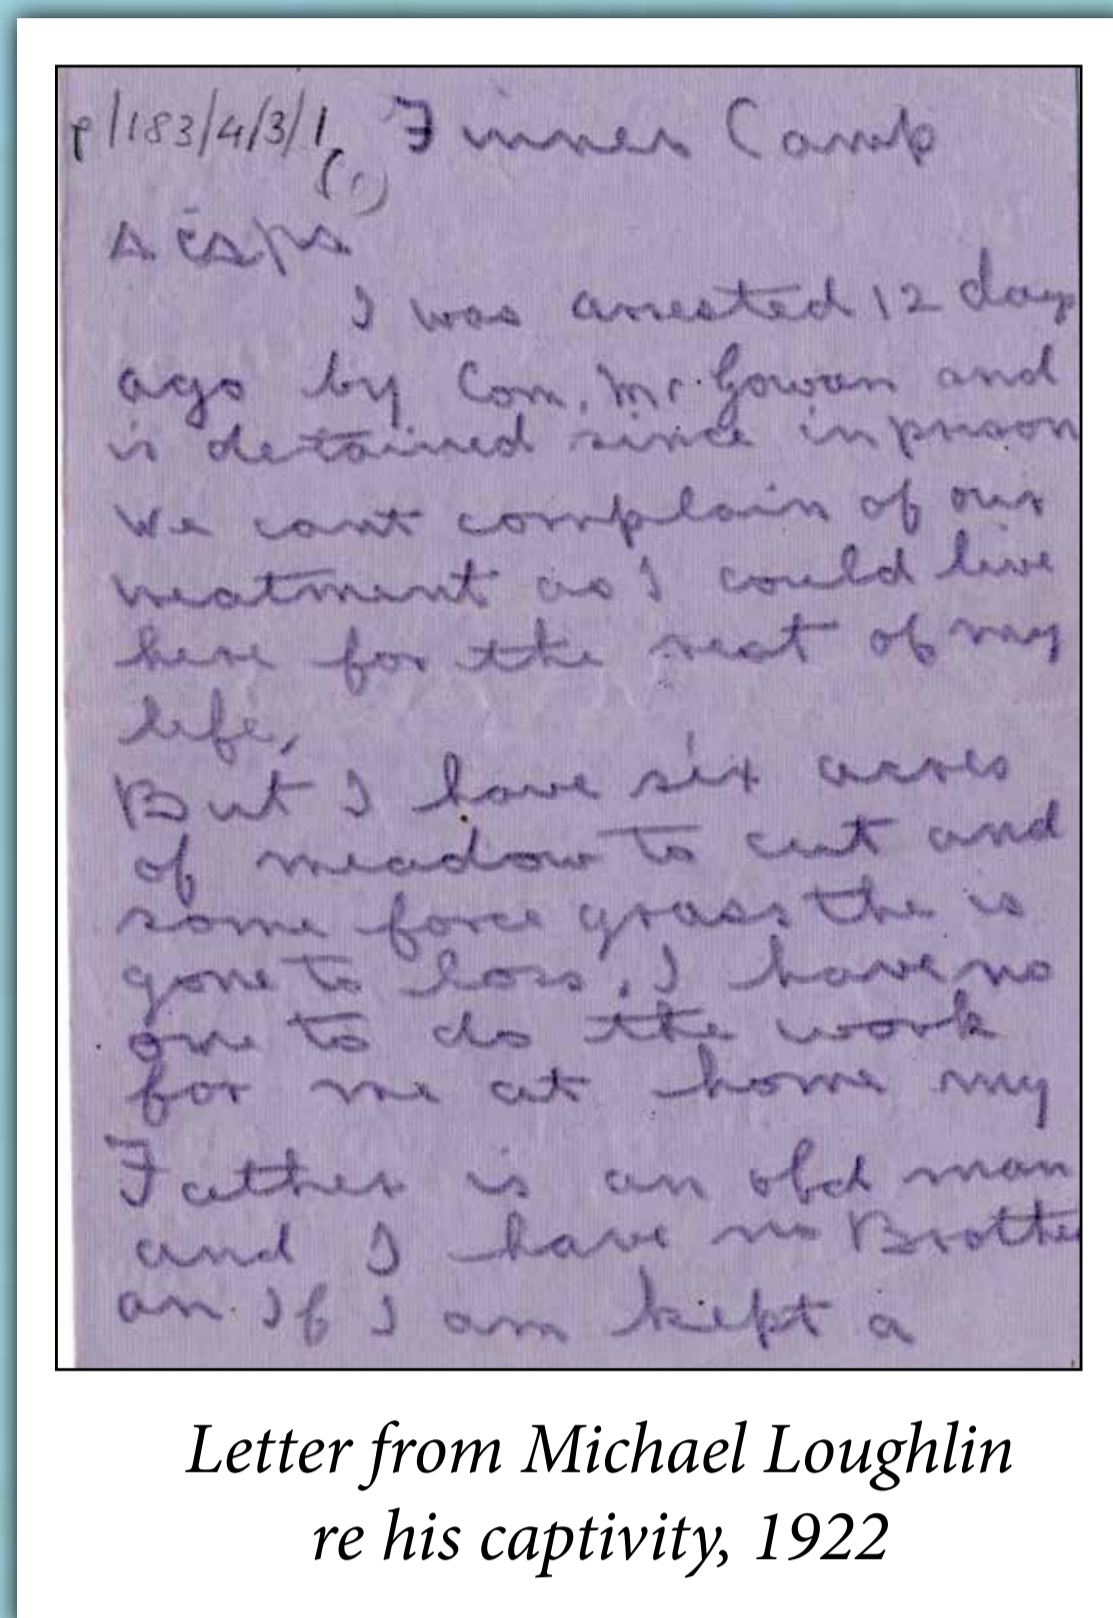 P/183/4/3/1 Finner Camp
(1)
A Ċapa
I was arrested 12 days
ago by Com. Mc. Gowan and
is detained since in prison
We cant complain of our
treatment as I could live
here for the rest of my
life,
But I have six acres
of meadow to cut and
some force grass the is
gone to loss, I have no
one to do the work
for me at home my
Father is an old man
and I have no Brothe
an If I am kept a
Letter from Michael Loughlin
re his captivity, 1922